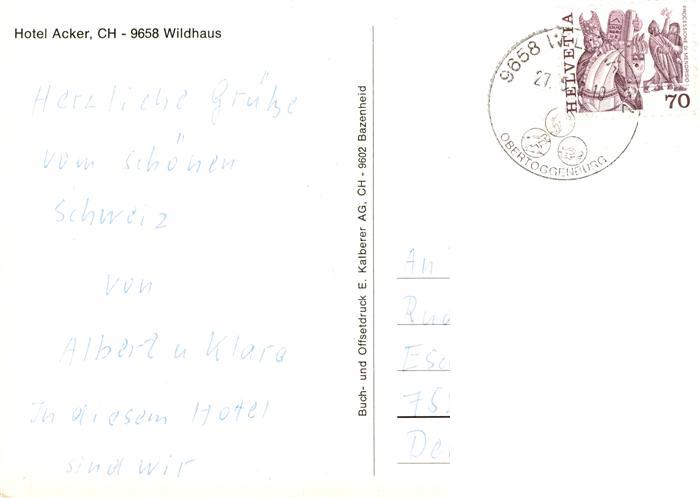 Hotel Acker, CH - 9658 Wildhaus
Herzliche Grüße
vom schönen
Schweiz
von
Albert u Klara
In diesem Hotel
sind wir
Buch- und Offsetdruck E. Kalberer AG, CH - 9602 Bazenheid
9658
27.
OBERTOGGENBURG
HELVETIA
PROCESSIONI MENDRISIO
70
An